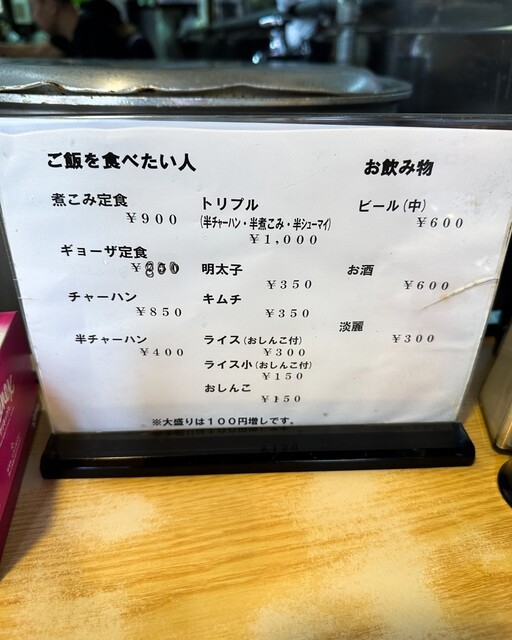 ご飯を食べたい人
煮こみ定食
¥900
ギョーザ定食
¥
チャーハン
¥850
半チャーハン
¥400
トリプル
(半チャーハン・半煮こみ・半シューマイ)
¥1,000
明太子
¥350
キムチ
¥350
ライス(おしんこ付)
¥300
ライス小(おしんこ付)
¥150
おしんこ
¥150
※大盛りは100円増しです。
お飲み物
ビール(中)
¥600
お酒
¥600
淡麗
¥300